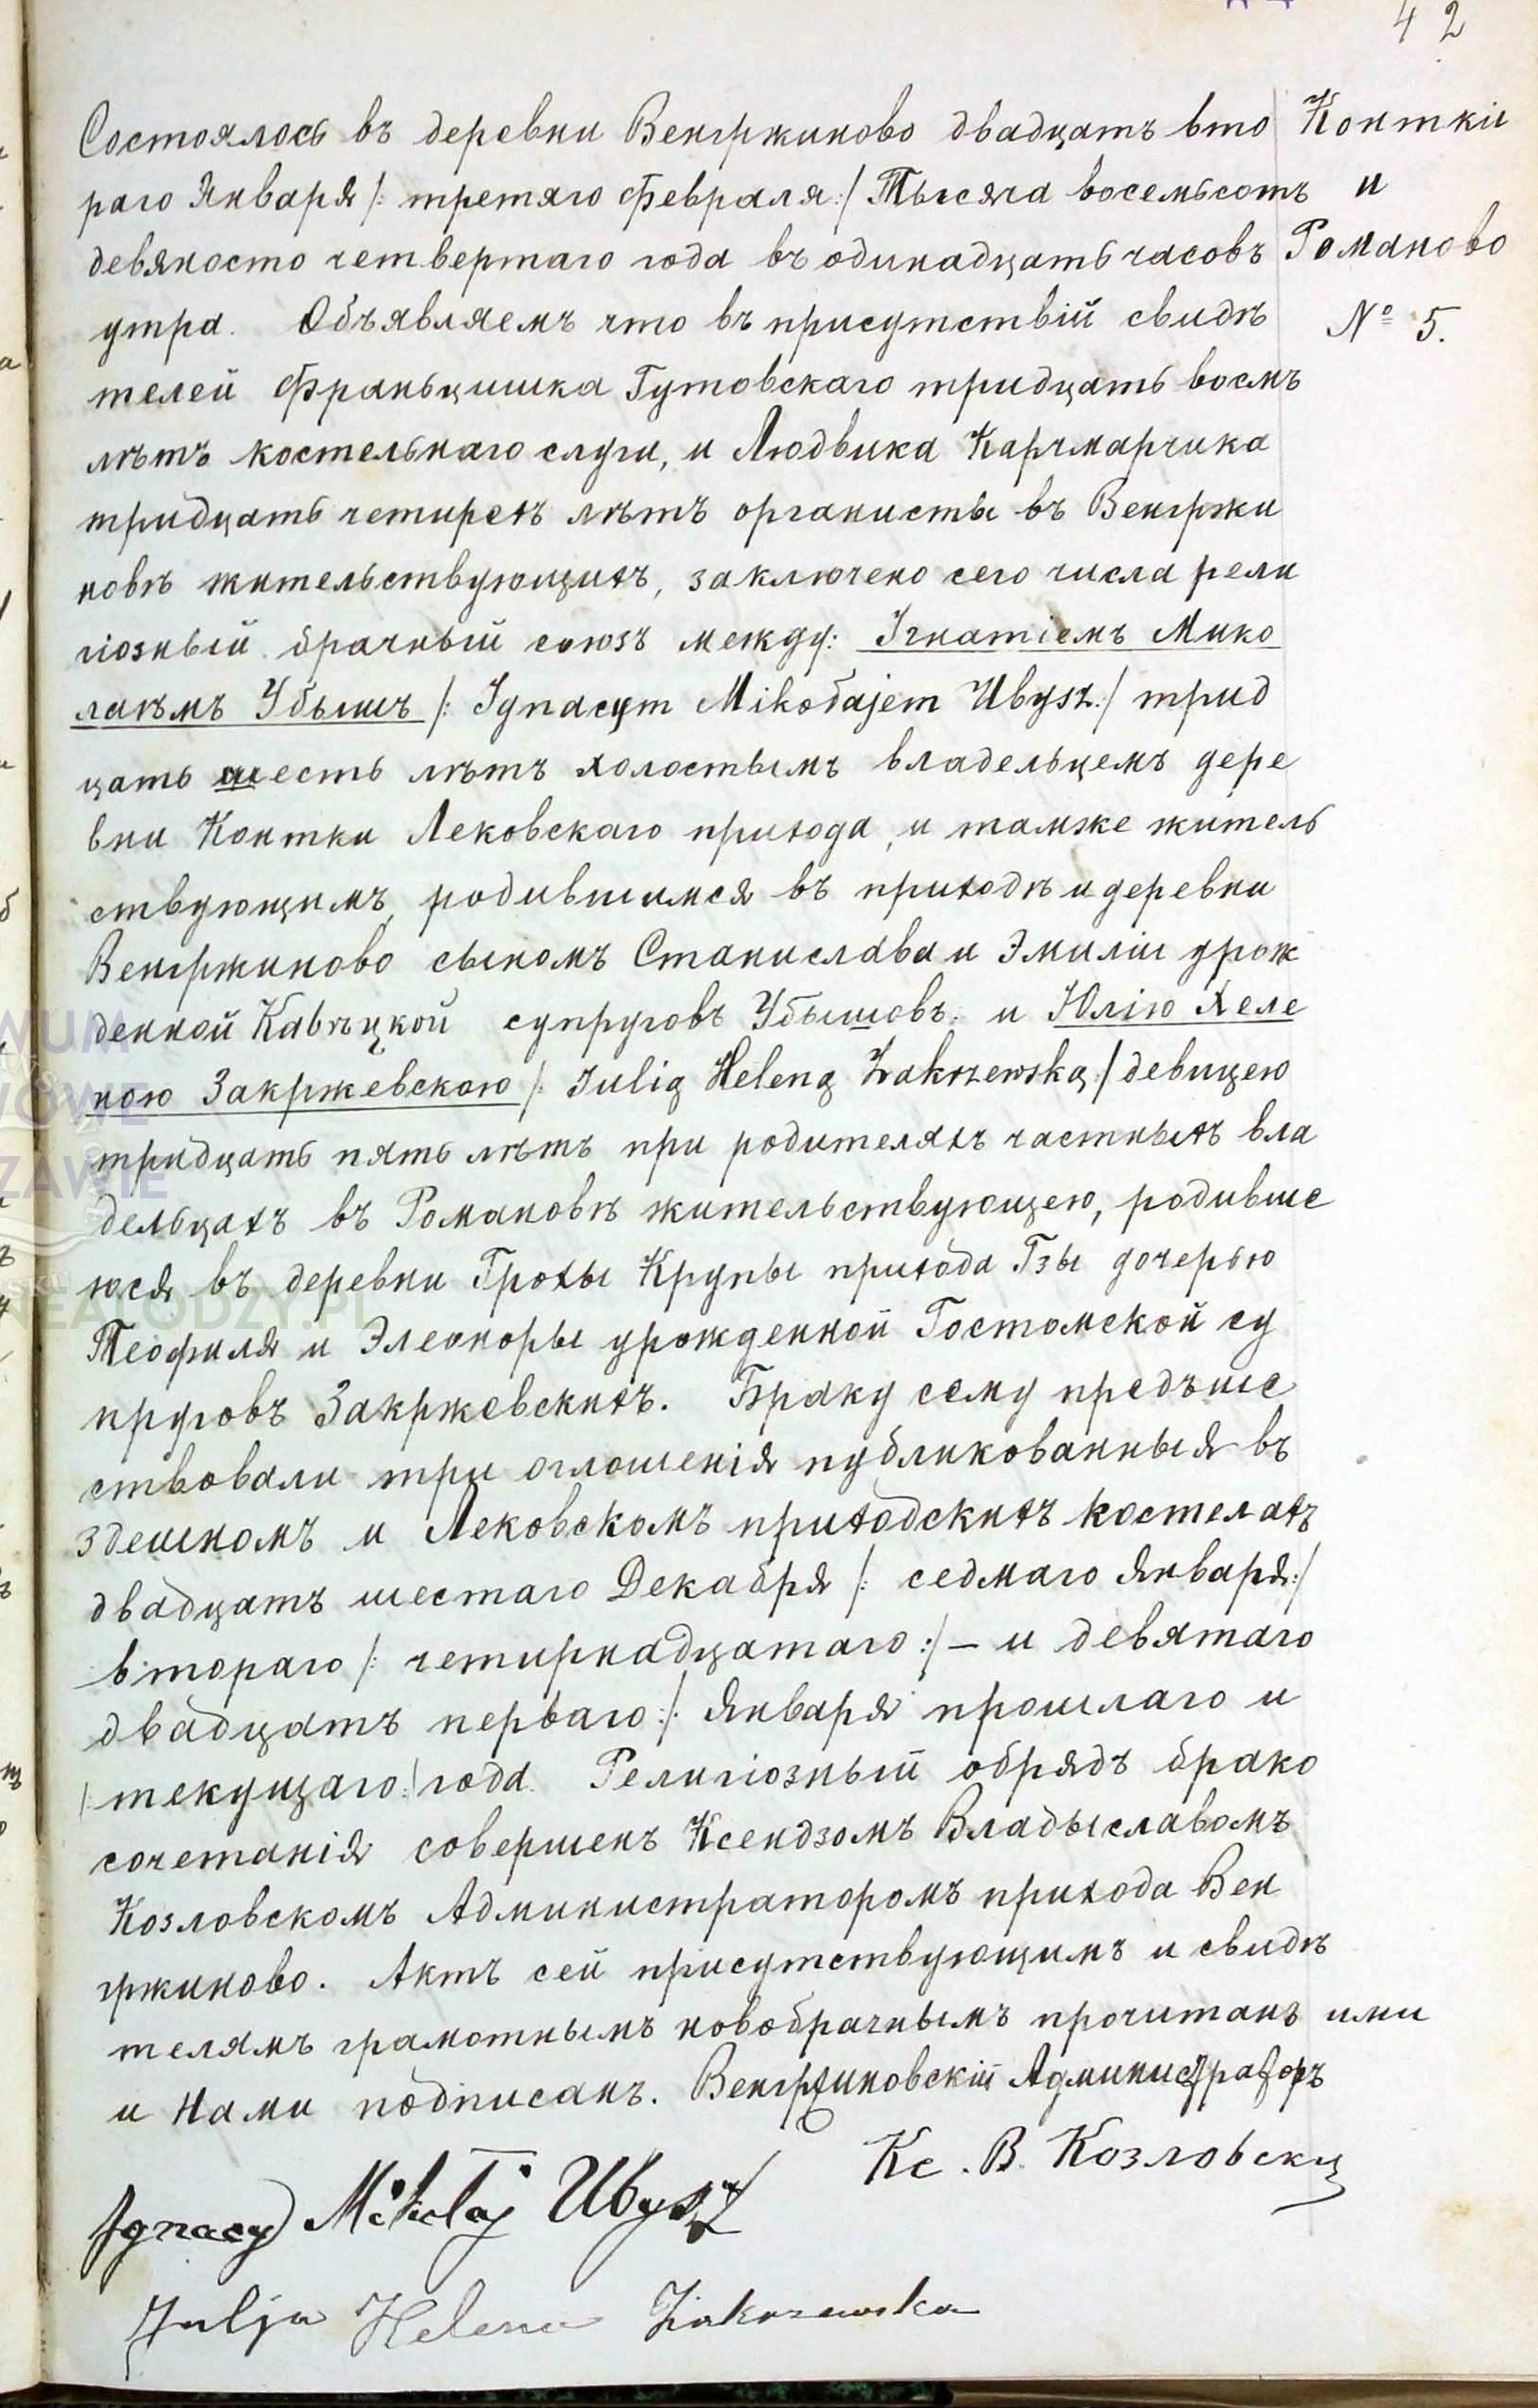 42
Контки
и
Романово
№ 5.
Состоялось въ деревни Венгржиново двадцать вто
раго Января /: третяго Февраля :/ Тысяча восемьсотъ
девяносто четвертаго года въ одинадцать часовъ
утра. Объявляемъ что въ присутствій свидѣ
телей Франьцишка Гутовскаго тридцать восмъ
лѣтъ костельнаго слуги, и Людвика Карчмарчика
тридцать четирехъ лѣтъ органисты въ Венгржи
новѣ жительствующихъ, заключено сего числа рели
гіозный брачный союзъ между: Игнатіемъ Мико
лаѣмъ Убышъ /: Ignacym Mikołajem Ubysz :/ трид
цать шесть лѣтъ холостымъ владельцемъ дере
вни Контки Лековскаго прихода, и тамже житель
ствующимъ, родившимся въ приходѣ и деревни
Венгржиново сыномъ Станислава и Эмиліи урож
денной Кавѣцкой супруговъ Убышовъ: и Юлію Хеле
ною Закржевскою /: Julią Heleną Zakrzewską :/ девицею
тридцать пять лѣтъ при родителяхъ частныхъ вла
дельцахъ въ Романовѣ жительствующею, родивше
юся въ деревни Грохы Крупы прихода Гзы дочерью
Теофиля и Элеоноры урожденной Гостомской су
пруговъ Закржевскихъ. Браку сему предъше
ствовали три оглошенія публикованныя въ
здешномъ и Лековскомъ приходскихъ костелахъ
двадцатъ шестаго Декабря /: седмаго Января :/
втораго /: четирнадцатаго :/ – и девятаго
двадцатъ перваго :/ Января прошлаго и
/: текущаго :/ года. Религіозный обрядъ брако
сочетанія совершенъ Ксендзомъ Владыславомъ
Козловскомъ Администраторомъ прихода Вен
гржиново. Актъ сей присутствующимъ и свидѣ
телямъ грамотнымъ новобрачнымъ прочитанъ ими
и Нами подписанъ. Венгржиновскій Администраторъ
Кс. В. Козловски
Ignacy Mikołaj Ubysz
Julja Helena Zakrzewska